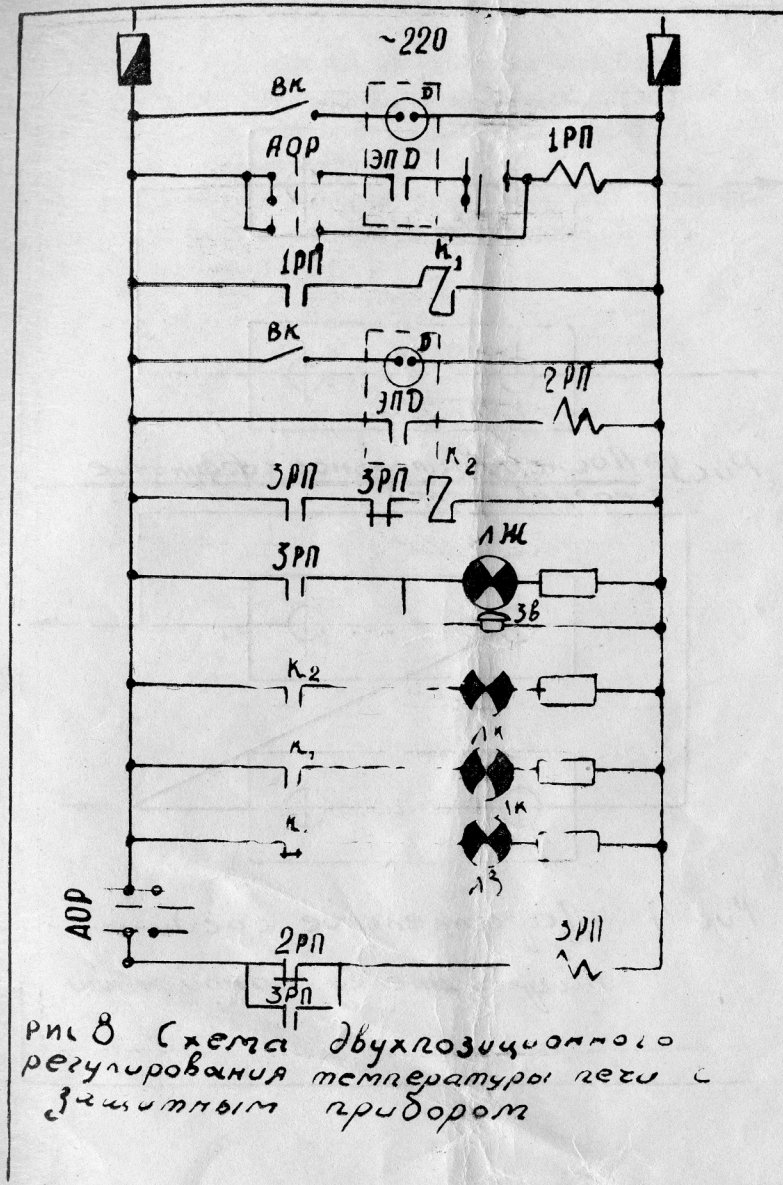 ~220
ВК
D
АОР
ЭПD
1РП
1РП
К1
ВК
D
ЭПD
2РП
К2
3РП
3РП
3РП
ЛЖ
Зв
К2
ЛК
К1
1К
К
ЛЗ
АОР
2РП
3РП
3РП
Рис 8 Схема двухпозиционного
регулирования температуры печи с
защитным прибором